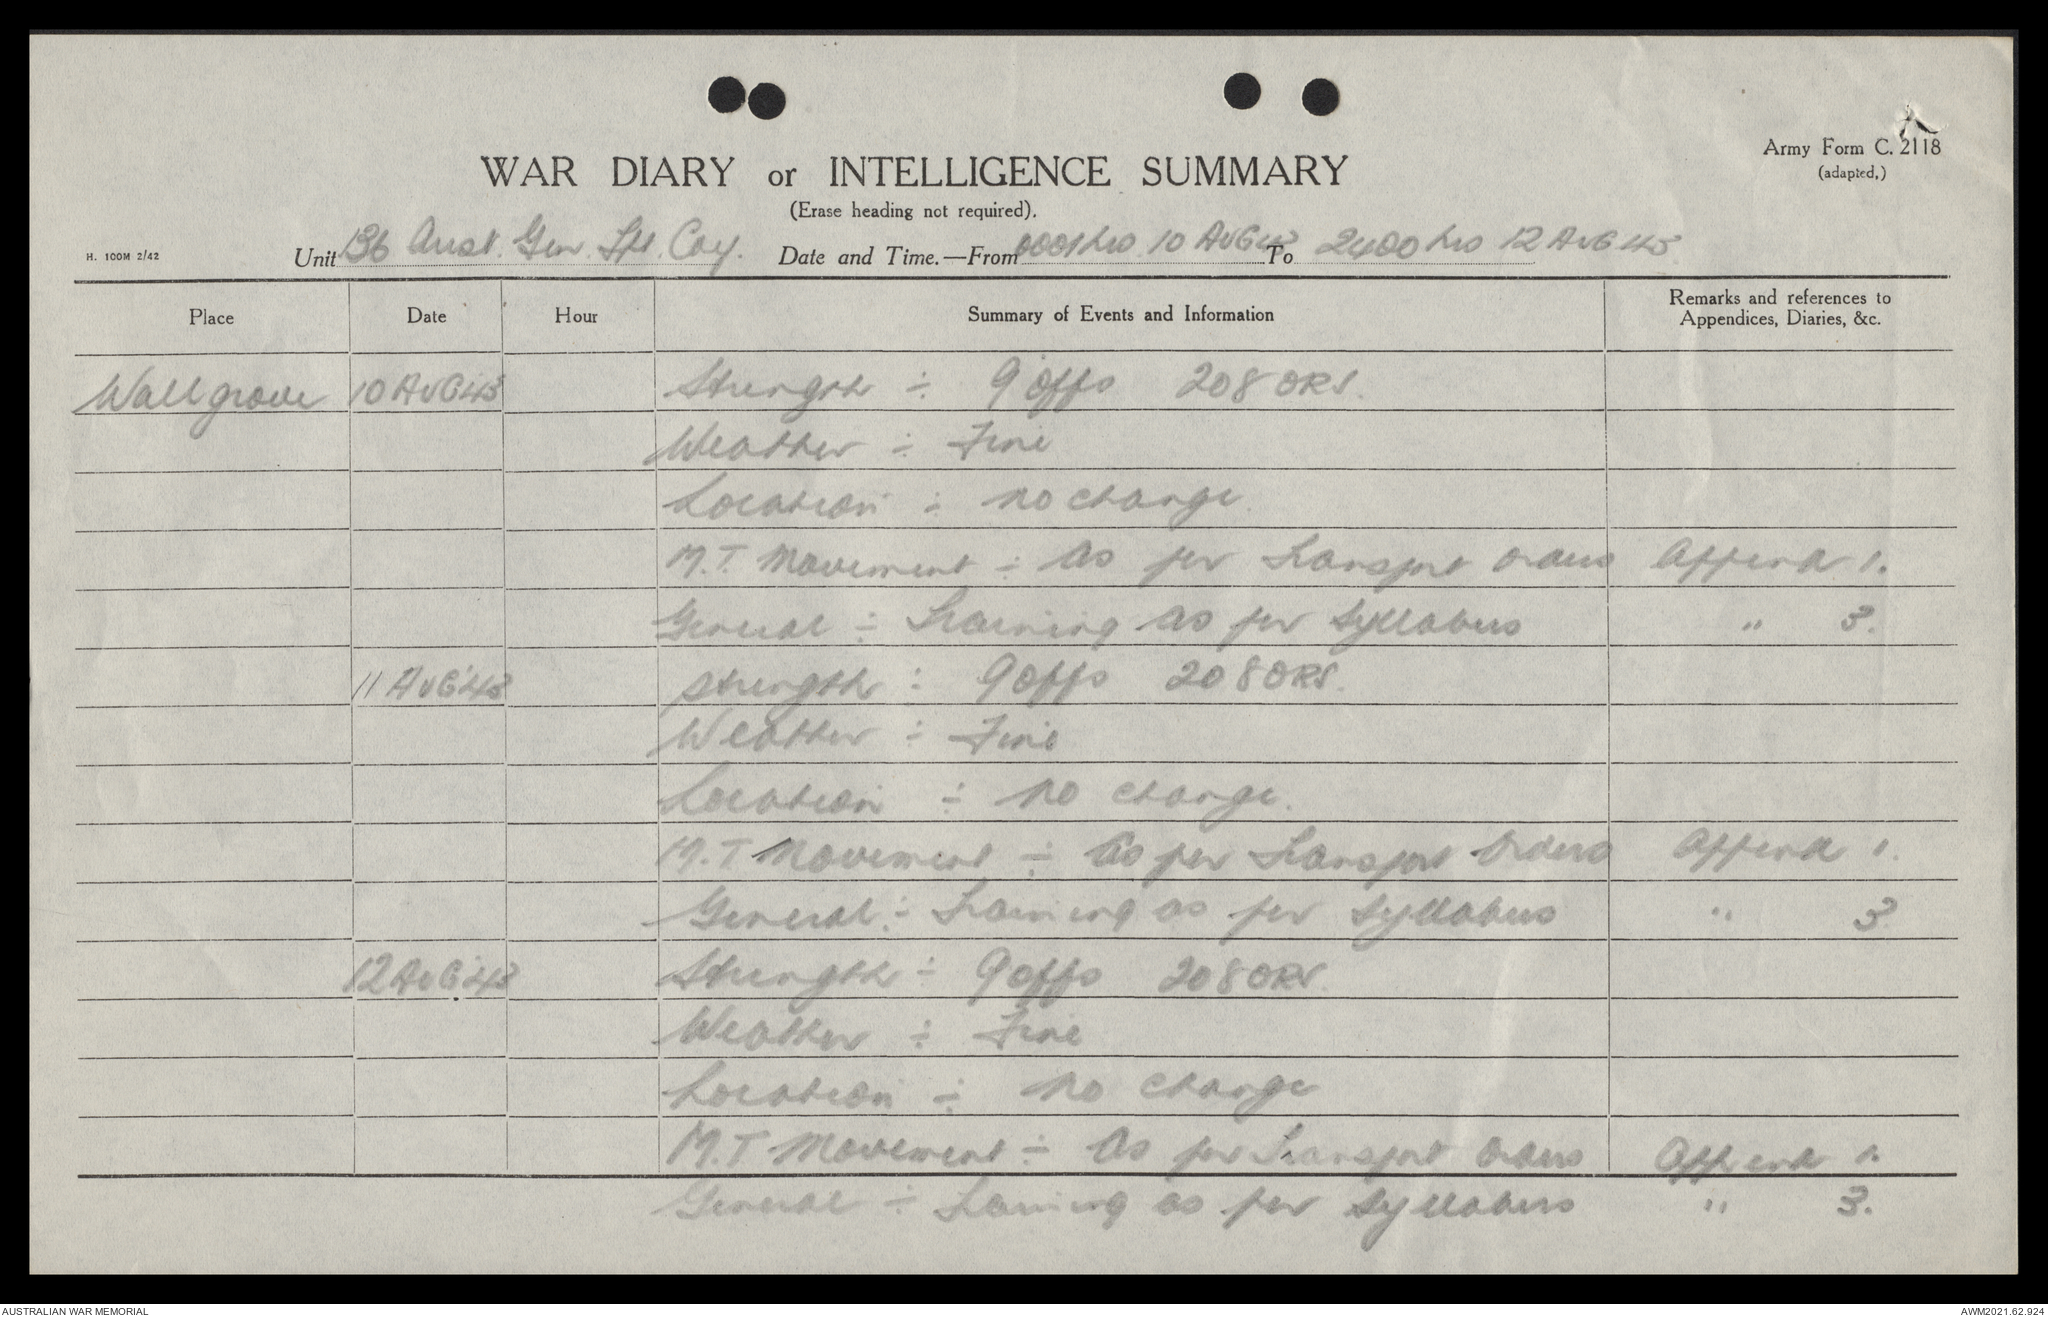 Army Form C. 2118
(adapted,)
WAR DIARY or INTELLIGENCE SUMMARY
(Erase heading not required).
H. 100M 2/42
Unit 136 Aust. Gen. Tpt. Coy. Date and Time.—From 0001 hrs 10 AUG 43 To 2400 hrs 12 AUG 43
Place Date Hour Summary of Events and Information Remarks and references to Appendices, Diaries, &c.
Wallgrove 10 AUG 43 Strength ÷ 9 offs 208 ORS.
Weather ÷ Fine
Location ÷ no change.
M.T. Movement ÷ As per Transport Orders Append 1.
General ÷ Training as per Syllabus " 3.
11 AUG 43 Strength ÷ 9 offs 208 ORS.
Weather ÷ Fine
Location ÷ no change.
M.T Movement ÷ As per Transport Orders Append 1.
General ÷ Training as per Syllabus " 3
12 AUG 43 Strength ÷ 9 offs 208 ORS.
Weather ÷ Fine
Location ÷ no change
M.T Movement ÷ As per Transport Orders Append 1.
General ÷ Training as per Syllabus " 3.
AUSTRALIAN WAR MEMORIAL AWM2021.62.924